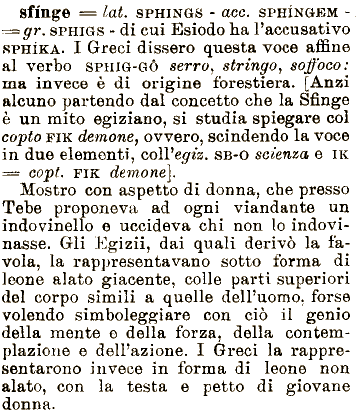 sfinge = lat. SPHINGS - acc. SPHÍNGEM -
= gr. SPHIGS - di cui Esiodo ha l'accusativo
SPHÍKA. I Greci dissero questa voce affine
al verbo SPHIG-GÔ serro, stringo, soffoco:
ma invece è di origine forestiera. [Anzi
alcuno partendo dal concetto che la Sfinge
è un mito egiziano, si studia spiegare col
copto FIK demone, ovvero, scindendo la voce
in due elementi, coll'egiz. SB-O scienza e IK
= copt. FIK demone].
Mostro con aspetto di donna, che presso
Tebe proponeva ad ogni viandante un
indovinello e uccideva chi non lo indovi-
nasse. Gli Egizii, dai quali derivò la fa-
vola, la rappresentavano sotto forma di
leone alato giacente, colle parti superiori
del corpo simili a quelle dell'uomo, forse
volendo simboleggiare con ciò il genio
della mente e della forza, della contem-
plazione e dell'azione. I Greci la rappre-
sentarono invece in forma di leone non
alato, con la testa e petto di giovane
donna.